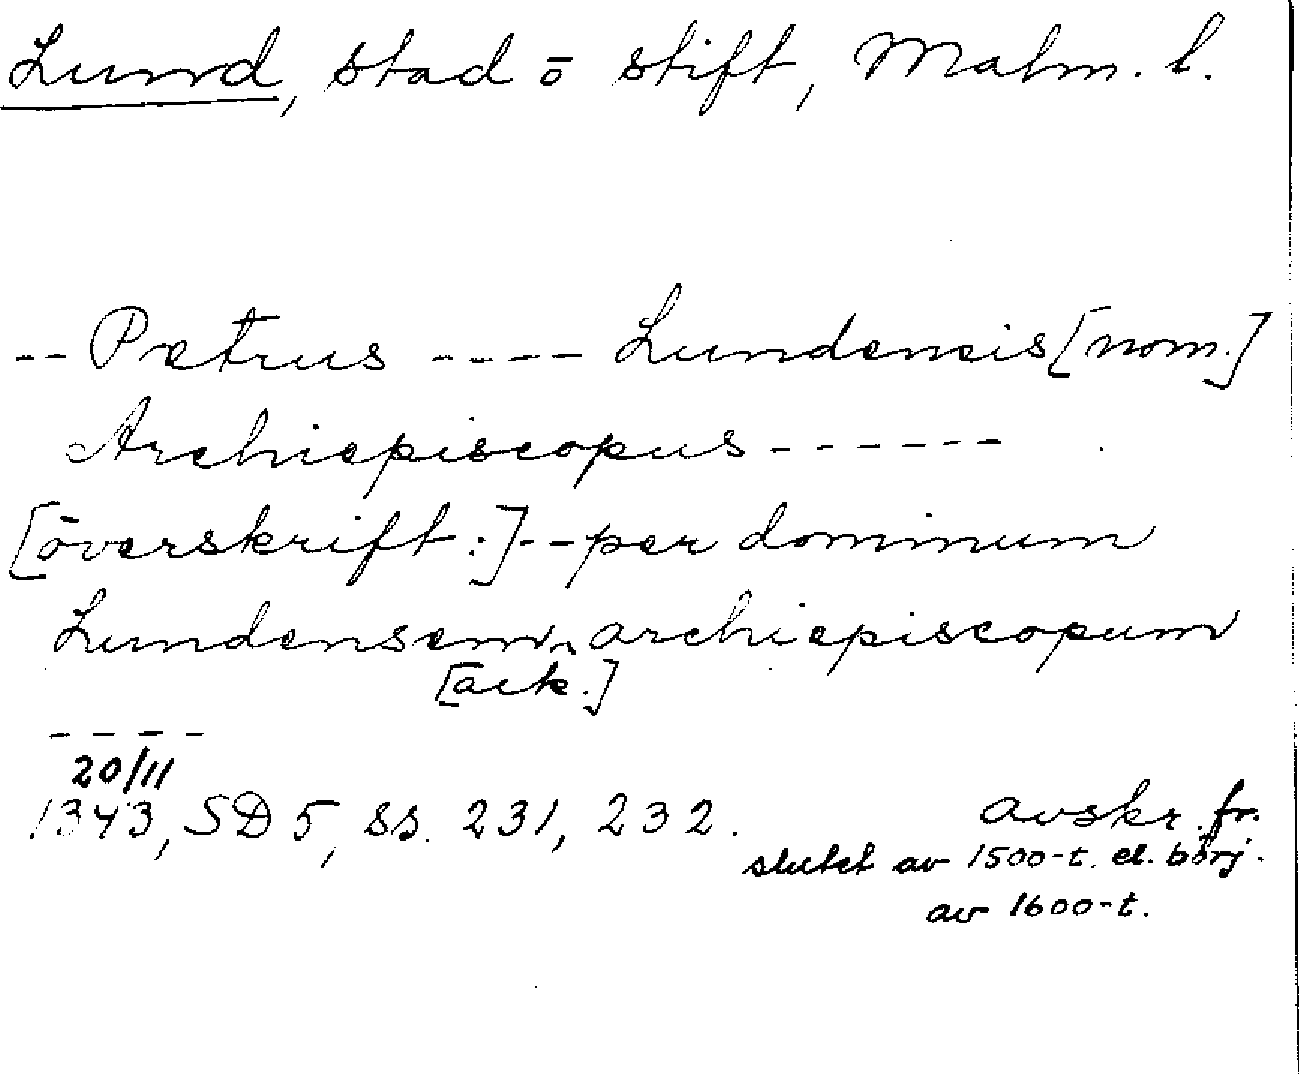 Lund, stad ō stift, Malm. l.
-- Petrus ---- Lundensis [nom.]
Archiepiscopus ------
[överskrift:] -- per dominum
Lundensem archiepiscopum
[ack.]
----
20/11
1343, SD 5, ss. 231, 232. avskr. fr.
slutet av 1500-t. el. börj.
av 1600-t.